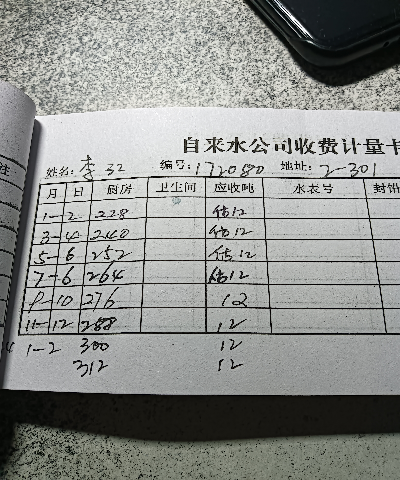 自来水公司收费计量卡
姓名: 李 编号: 172080 地址: 2-301
月 日 厨房 卫生间 应收吨 水表号 封铅
1-2 228 估12
3-4 240 估12
5-6 252 估12
7-6 264 估12
9-10 276 12
11-12 288 12
1-2 300 12
312 12